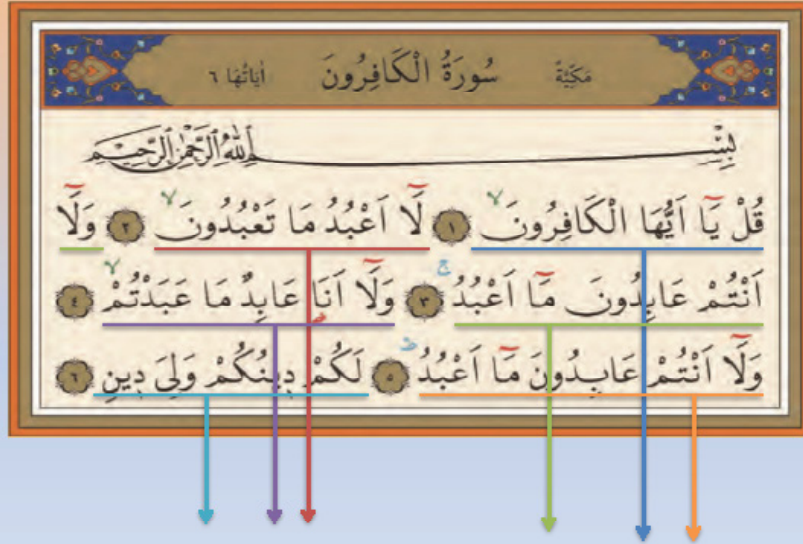 مَكِّيَّةٌ سُورَةُ الْكَافِرُونَ اٰيَاتُهَا ٦
بِسْمِ اللّٰهِ الرَّحْمٰنِ الرَّحِيمِ
قُلْ يَٓا اَيُّهَا الْكَافِرُونَۙ ١ لَٓا اَعْبُدُ مَا تَعْبُدُونَۙ ٢ وَلَٓا
اَنْتُمْ عَابِدُونَ مَٓا اَعْبُدُۚ ٣ وَلَٓا اَنَا۬ عَابِدٌ مَا عَبَدْتُمْۙ ٤
وَلَٓا اَنْتُمْ عَابِدُونَ مَٓا اَعْبُدُۜ ٥ لَكُمْ دِينُكُمْ وَلِيَ دِينِ ٦